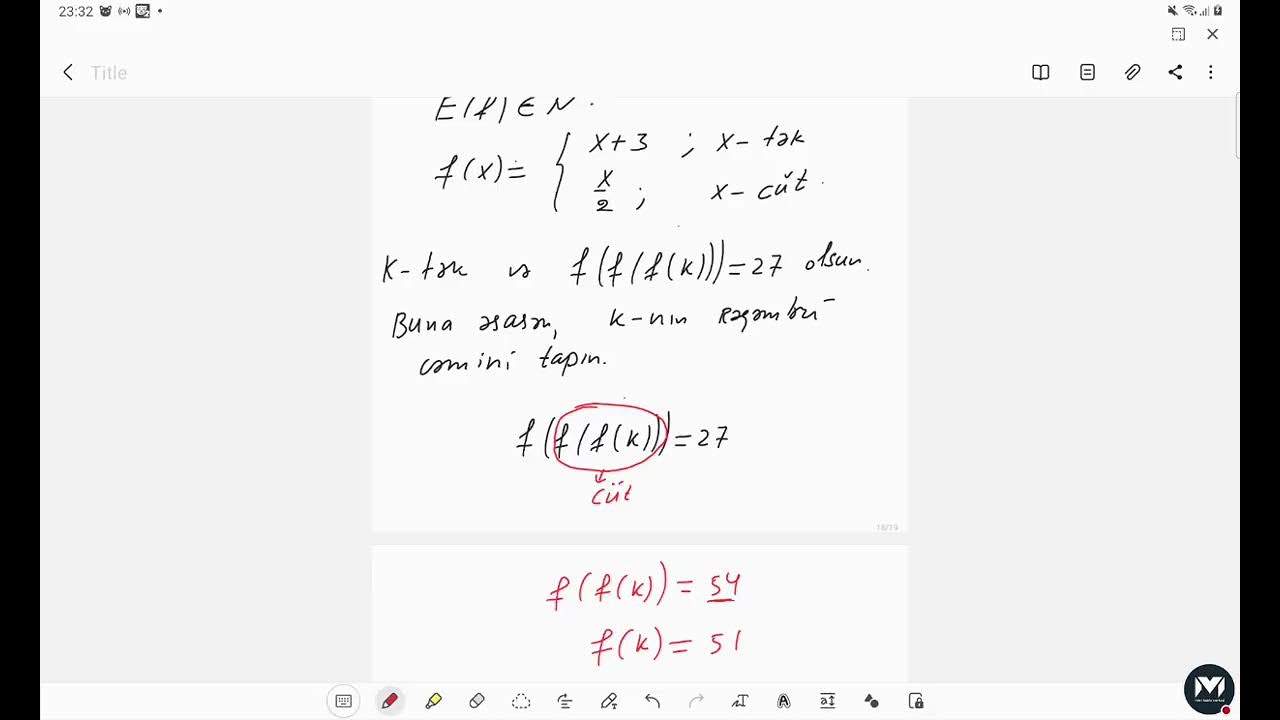 23:32
Title
E(f) ∈ N.
f(x) = { x+3 ; x - tək
x/2 ; x - cüt.
K - tək və f(f(f(k))) = 27 olsun.
Buna əsasən, k-nın rəqəmləri
cəmini tapın.
f(f(f(k))) = 27
cüt
18/19
f(f(k)) = 54
f(k) = 51